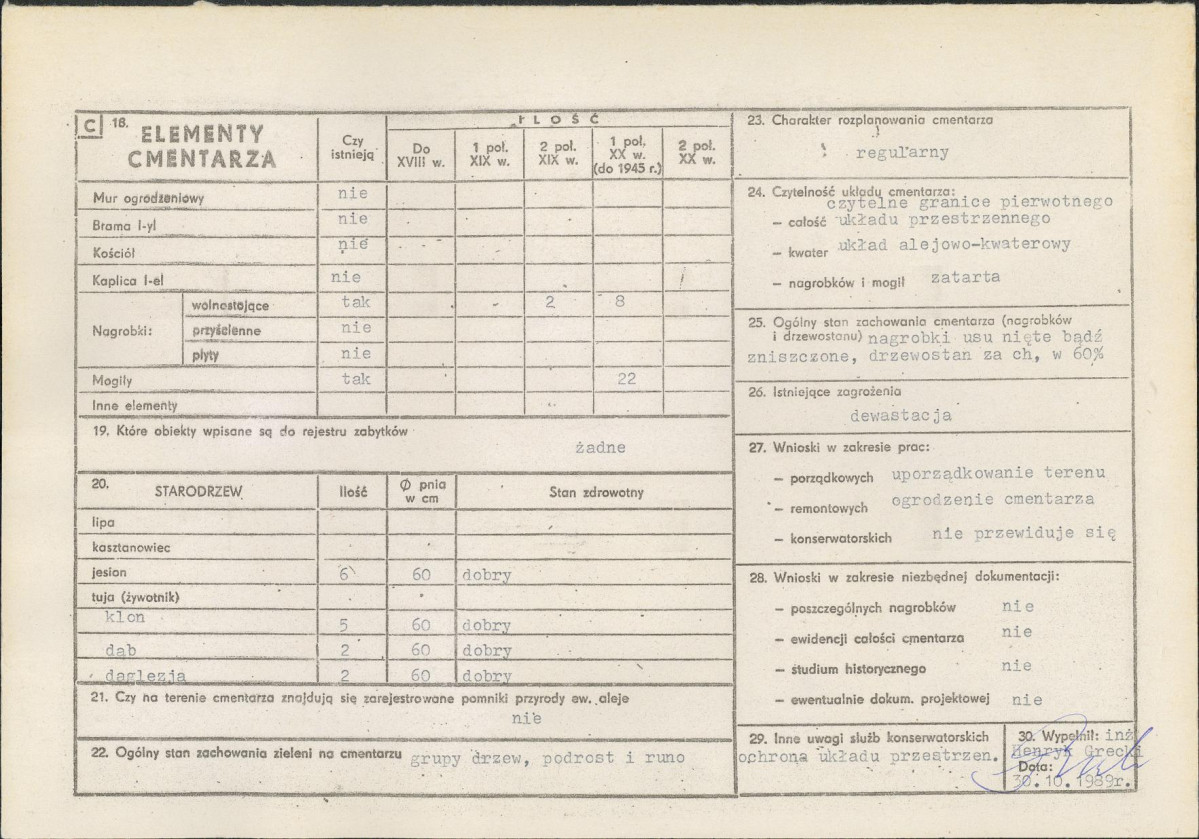 C 18. ELEMENTY CMENTARZA
Czy istnieją
IŁOŚĆ
Do XVIII w.
1 poł. XIX w.
2 poł. XIX w.
1 poł. XX w. (do 1945 r.)
2 poł. XX w.
Mur ogrodzeniowy nie
Brama I-yl nie
Kościół nie
Kaplica I-el nie
Nagrobki:
wolnostojące tak 2 8
przyścienne nie
płyty nie
Mogiły tak 22
Inne elementy
19. Które obiekty wpisane są do rejestru zabytków
żadne
20. STARODRZEW Ilość Ø pnia w cm Stan zdrowotny
lipa
kasztanowiec
jesion 6 60 dobry
tuja (żywotnik)
klon 5 60 dobry
dab 2 60 dobry
daglezja 2 60 dobry
21. Czy na terenie cmentarza znajdują się zarejestrowane pomniki przyrody ew. aleje
nie
22. Ogólny stan zachowania zieleni na cmentarzu grupy drzew, podrost i runo
23. Charakter rozplanowania cmentarza
regularny
24. Czytelność układu cmentarza:
czytelne granice pierwotnego
— całość układu przestrzennego
— kwater układ alejowo-kwaterowy
— nagrobków i mogił zatarta
25. Ogólny stan zachowania cmentarza (nagrobków
i drzewostanu) nagrobki usu nięte bądź
zniszczone, drzewostan za ch, w 60%
26. Istniejące zagrożenia
dewastacja
27. Wnioski w zakresie prac:
— porządkowych uporządkowanie terenu
— remontowych ogrodzenie cmentarza
— konserwatorskich nie przewiduje się
28. Wnioski w zakresie niezbędnej dokumentacji:
— poszczególnych nagrobków nie
— ewidencji całości cmentarza nie
— studium historycznego nie
— ewentualnie dokum. projektowej nie
29. Inne uwagi służb konserwatorskich
ochrona układu przestrzen.
30. Wypełnił: inż
Henryk Grecki
Data:
30.10.1989r.